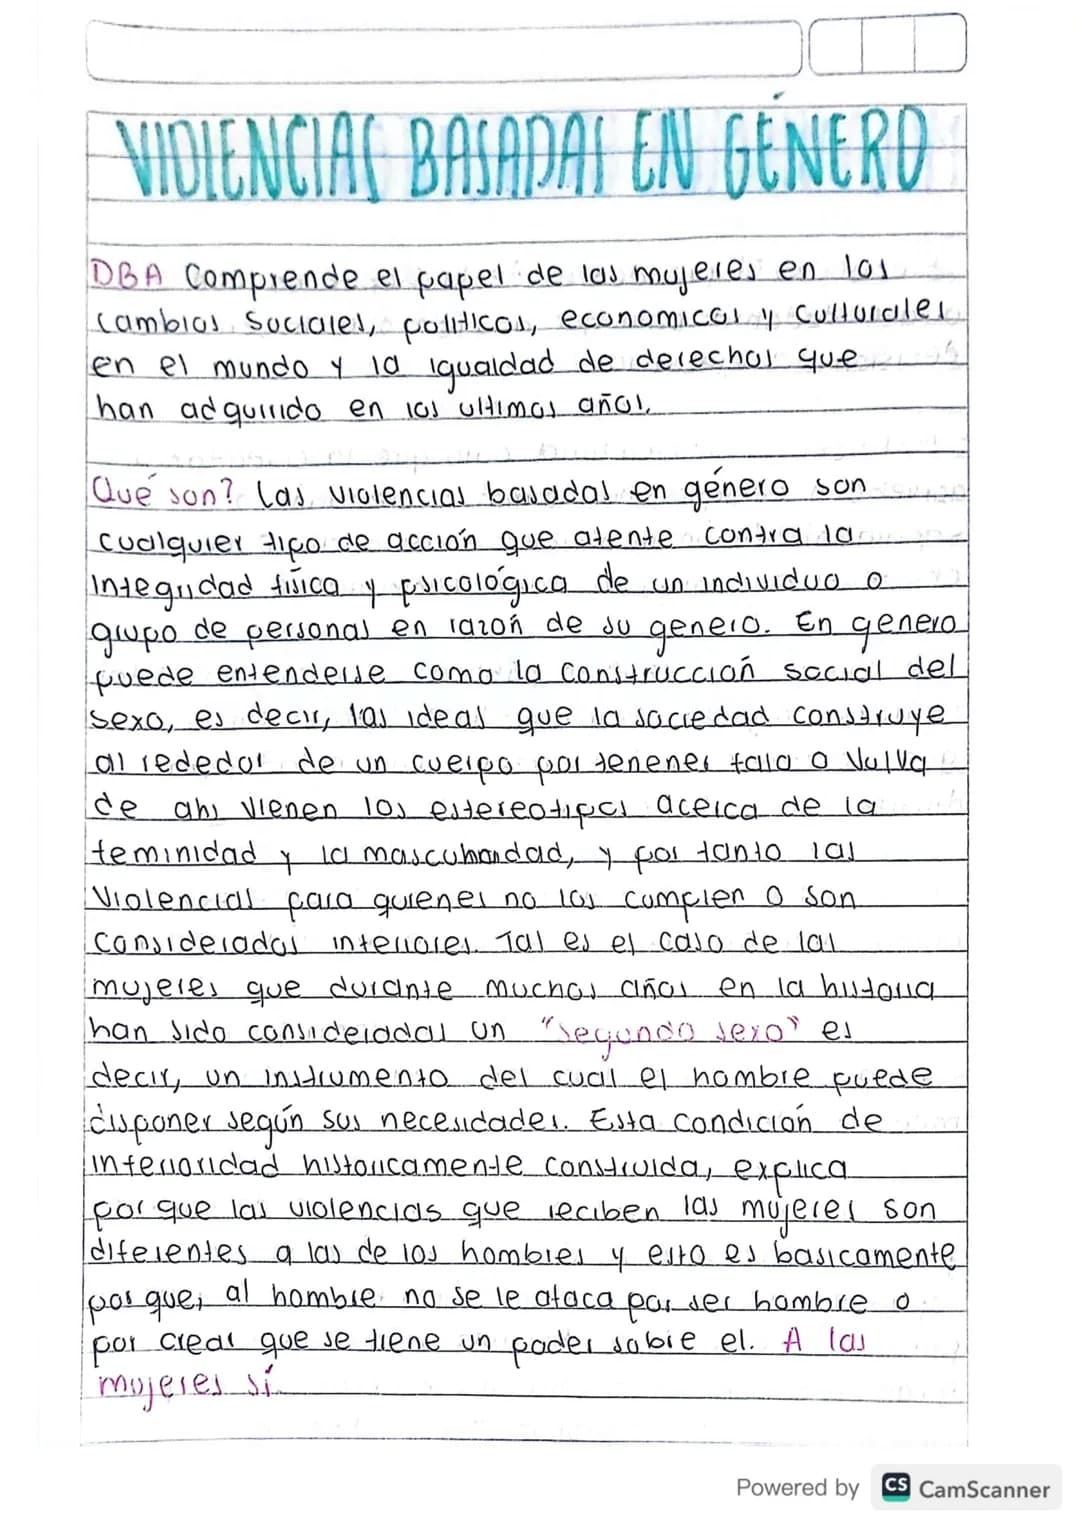 VIOLENCIAS BASADAS EN GÉNERO
DBA Comprende el papel de las mujeres en los
cambios sociales, politicos, economicos y culturales
en el mundo y la igualdad de derechos que
han adquirido en los ultimos años.
Qué son? Las violencias basadas en género son
cualquier tipo de acción que atente contra la
Integridad física y psicológica de un individuo o
grupo de personas en razón de su genero. En genero
puede entenderse como la construcción social del
sexo, es decir, las ideas que la sociedad construye
al rededor de un cuerpo por tenener falo o Vulva
de ahi vienen los estereotipos acerca de la
feminidad y la masculinidad, y por tanto las
Violencias para quienes no los cumplen o son
considerados inferiores. Tal es el caso de las
mujeres que durante muchos años en la historia
han sido consideradas un "segundo sexo" es
decir, un instrumento del cual el hombre puede
disponer según sus necesidades. Esta condición de
inferioridad historicamente construida, explica
por que las violencias que reciben las mujeres son
diferentes a las de los hombres y esto es basicamente
por que; al hombre no se le ataca por ser hombre o
por crear que se tiene un poder sobre el. A las
mujeres sí.
Powered by CS CamScanner